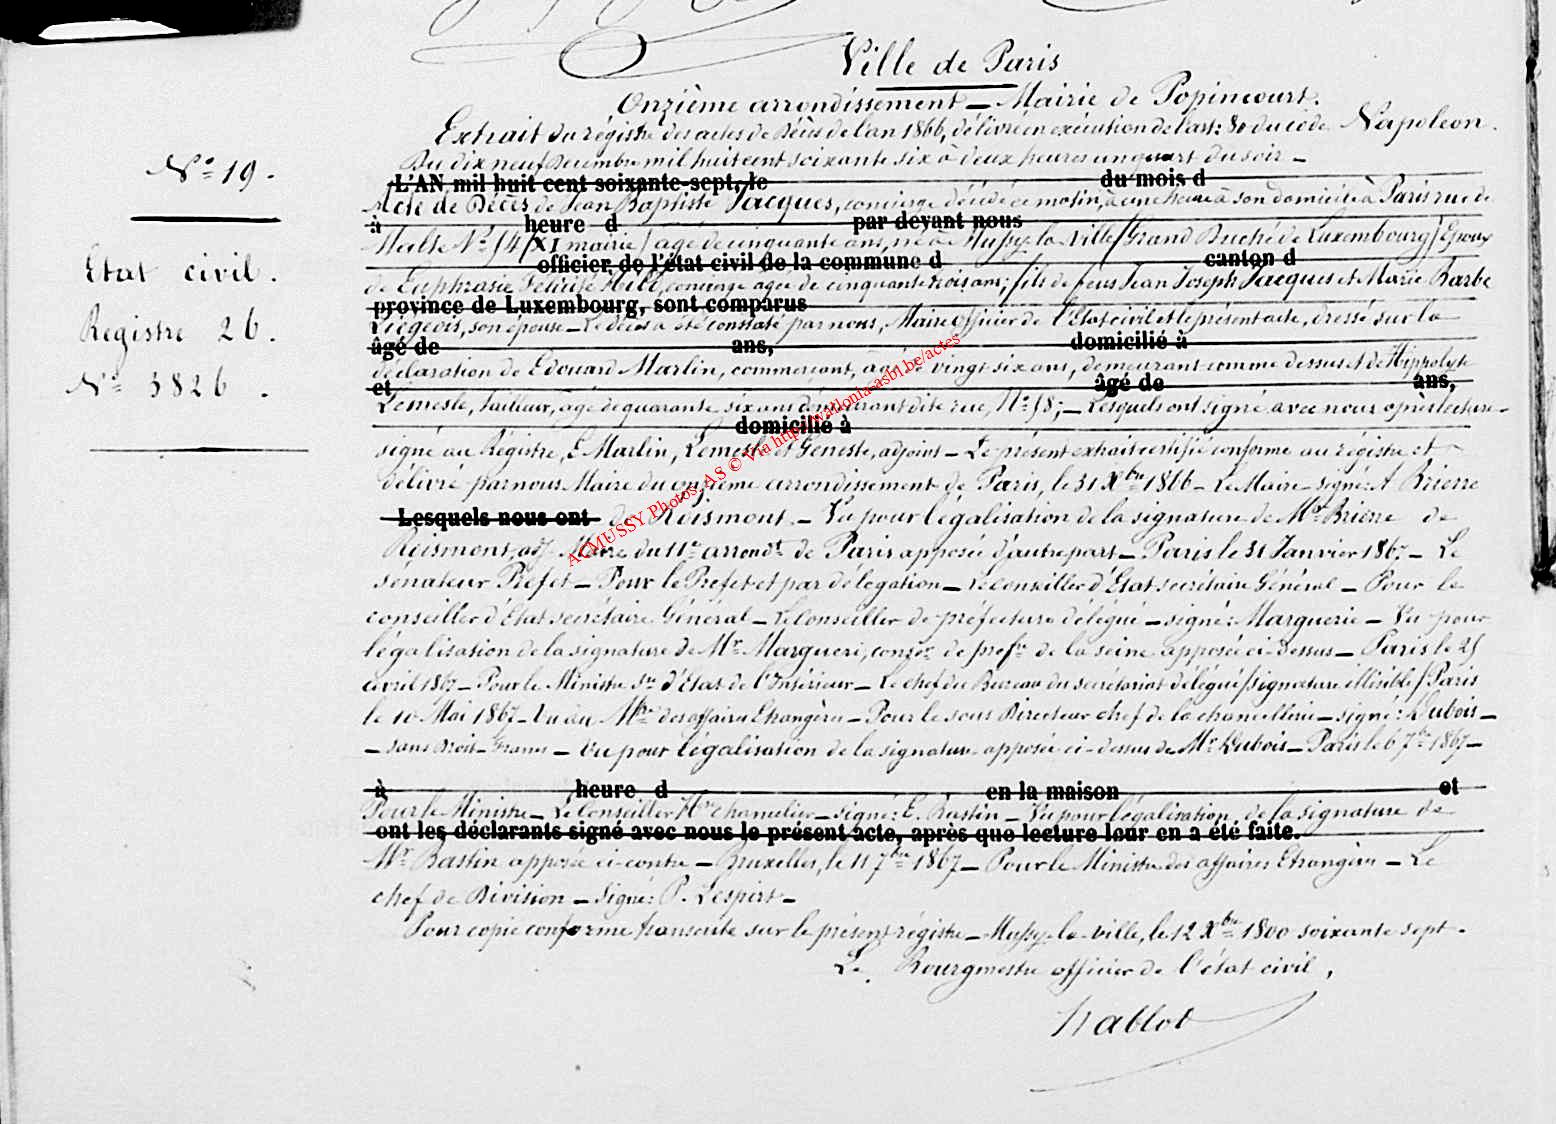 Ville de Paris
Onzième arrondissement _ Mairie de Popincourt.
Extrait du régistre des actes de Décès de l'an 1866, délivré en exécution de l'art: 80 du code Napoleon.
N° 19.
Du dix neuf Decembre mil huit cent soixante six à deux heures un quart du soir _
L'AN mil huit cent soixante-sept, le du mois d
Acte de Décès de Jean Baptiste Jacques, concierge décédé ce matin, à une heure à son domicile à Paris rue de
à heure d par devant nous
Malte N° 54 (XI mairie) agé de cinquante ans, né à Mussy-la-Ville (Grand Duché de Luxembourg) Epoux
Etat civil.
officier de l'état civil de la commune d canton d
de Euphrasie Félicité concierge agée de cinquante trois ans; fils de feus Jean Joseph Jacques et Marie Barbe
province de Luxembourg, sont comparus
Liégeois, son épouse _ Le décès a été constaté par nous, Maire officier de l'Etat civil et le présent acte, dressé sur la
Registre 26.
âgé de ans, domicilié à
déclaration de Edouard Marlin, commerçant, agé de vingt six ans, demeurant comme dessus et de Hippolyte
N° 3826.
et âgé de ans,
Lemesle, tailleur, agé de quarante six ans demeurant dite rue, N° 58; _ Lesquels ont signé avec nous après lecture _
domicilié à
signé au Régistre, E Marlin, Lemesle et Geneste, adjoint _ Le présent extrait certifié conforme au régistre et
délivré par nous Maire du onzième arrondissement de Paris, le 31 Xbre 1866 _ Le Maire signé: A Brierre
Lesquels nous ont de Roismont. _ Vu pour légalisation de la signature de Mr Brierre de
Roismont, adj. Maire du 11e arrondt de Paris apposée d'autre part _ Paris le 31 Janvier 1867 _ Le
sénateur Préfet _ Pour le Préfet et par délégation _ Le conseiller d'Etat secrétaire Général _ Pour le
conseiller d'Etat secrétaire Général _ Le Conseiller de préfecture délégué _ signé: Marguerie _ Vu pour
légalisation de la signature de Mr Margueri, conser de prefre de la seine apposée ci-dessus _ Paris le 25
avril 1867 _ Pour le Ministre Sre d'Etat de l'Intérieur _ Le chef du Bureau du secrétariat délégué (signature illisible) Paris
le 10 Mai 1867 _ Vu au Mtre des affaires Etrangères _ Pour le sous Directeur chef de la chancellerie _ signé: Dubois _
_ sans Droit-Francs _ Vu pour légalisation de la signature apposée ci-dessus de Mr Dubois _ Paris le 6 7bre 1867 _
à heure d en la maison et
Pour le Ministre _ Le Conseiller Hre chancelier _ signé: E. Bastin _ Vu pour légalisation, de la signature de
ont les déclarants signé avec nous le présent acte, après que lecture leur en a été faite.
Mr Bastin apposée ci-contre _ Bruxelles, le 11 7bre 1867 _ Pour le Ministre des affaires Etrangères _ Le
chef de Division _ Signé: P. Lespirt _
Pour copie conforme transcrite sur le présent régistre _ Mussy-la-ville, le 12 Xbre 1800 soixante sept.
Le Bourgmestre officier de l'état civil,
Nablot
AC MUSSY Photos AS © Via http://wallonia-asbl.be/actes